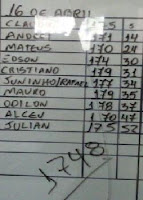 16 DE ABRIL
175 S
ANDREI 171 14
MATEUS 170 24
EDSON 174 30
CRISTIANO 179 31
JUNINHO/RAFAEL 171 34
MAURO 179 35
ODILON 178 37
ALCEU 170 47
JULIAN 175 52
1748